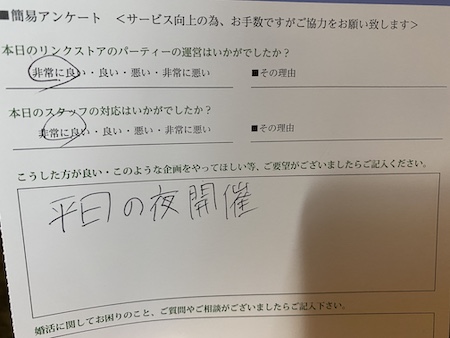 ■簡易アンケート <サービス向上の為、お手数ですがご協力をお願い致します>
本日のリンクストアのパーティーの運営はいかがでしたか?
非常に良い・良い・悪い・非常に悪い ■その理由
本日のスタッフの対応はいかがでしたか?
非常に良い・良い・悪い・非常に悪い ■その理由
こうした方が良い・このような企画をやってほしい等、ご要望がございましたらご記入ください。
平日の夜開催
婚活に関してお困りのこと、ご質問やご相談がございましたらご記入下さい。